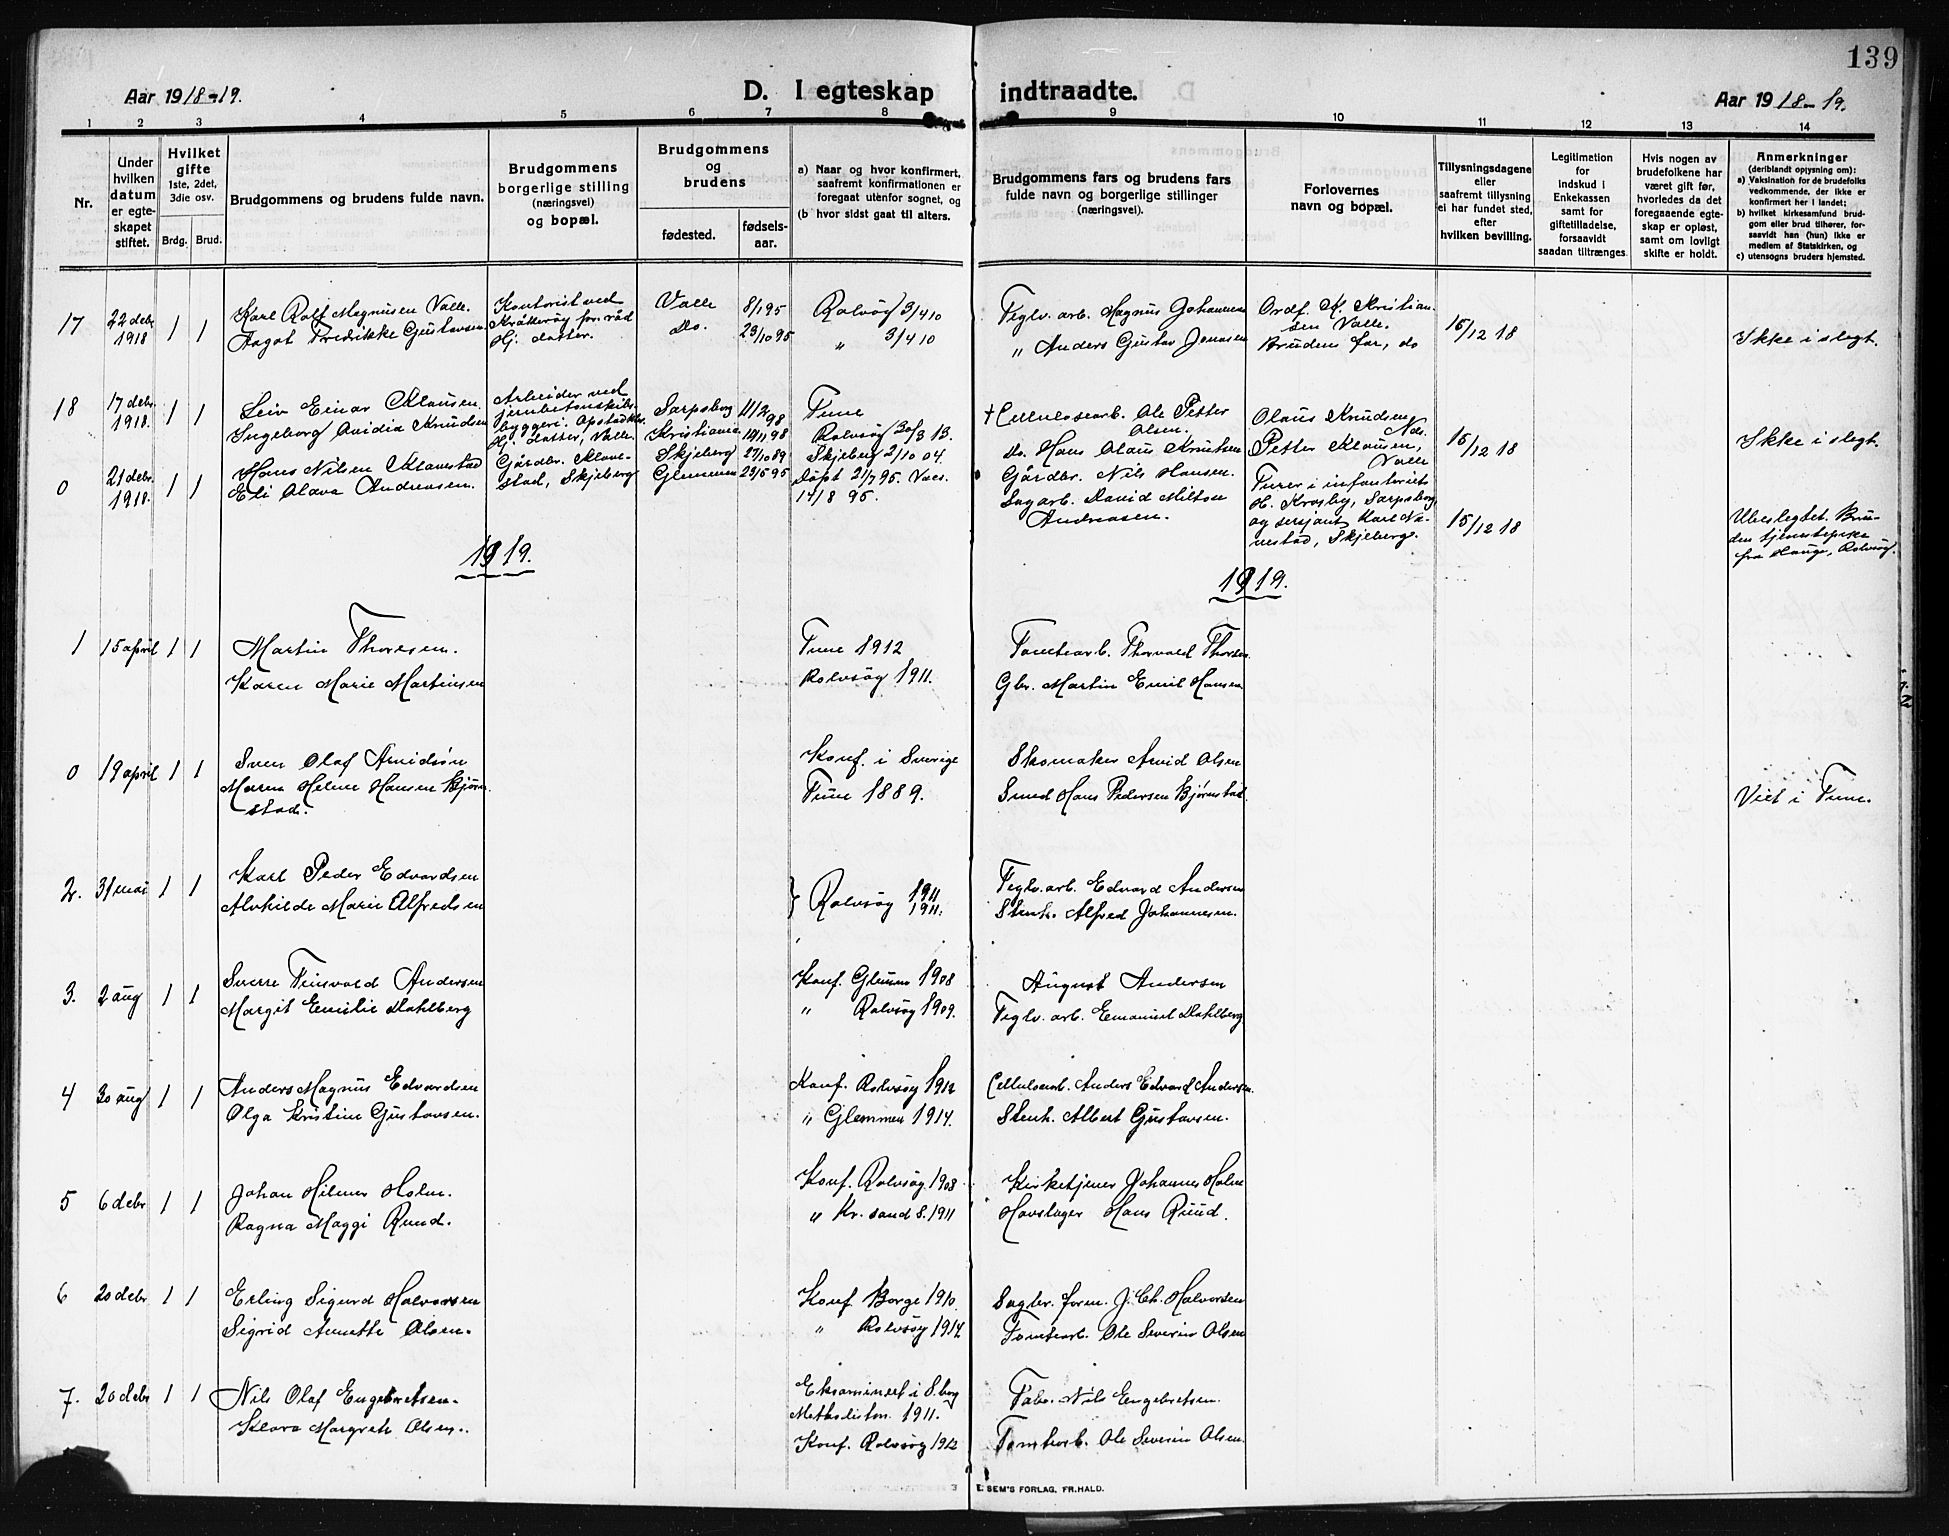 139
Aar 1918-19.
D. I egteskap indtraadte.
Aar 1918-19.
1 2 3 4 5 6 7 8 9 10 11 12 13 14
Nr.
Under hvilken datum er egteskapet stiftet.
Hvilket gifte 1ste, 2det, 3die osv.
Brdg. Brud.
Brudgommens og brudens fulde navn.
Brudgommens borgerlige stilling (næringsvei) og bopæl.
Brudgommens og brudens
fødested. fødselsaar.
a) Naar og hvor konfirmert, saafremt konfirmationen er foregaat utenfor sognet, og
(b hvor sidst gaat til alters.
Brudgommens fars og brudens fars fulde navn og borgerlige stillinger (næringsvei).
Forlovernes navn og bopæl.
Tillysningsdagene eller saafremt tillysning ei har fundet sted, efter hvilken bevilling.
Legitimation for indskud i Enkekassen samt for giftetilladelse, forsaavidt saadan tiltrænges.
Hvis nogen av brudefolkene har været gift før, hvorledes da det foregaaende egteskap er opløst, samt om lovligt skifte er holdt.
Anmerkninger (deriblandt opjysning om):
a) Vaksination for de brudefolks vedkommende, der ikke er konfirmert her i landet;
b) hvilket kirkesamfund brudgom eller brud tilhører, forsaavidt han (hun) ikke er medlem af Statskirken, og
c) utensogns bruders hjemsted.
17 22 debr 1918 1 1
Karl Rolf Magnusen Valle.
Aagot Fredrikke Gustavsen
Kontorist ved Kråkerøy for.råd
Hj. datter.
Valle 8/1 95
Do. 23/10 95
Rolvsøy 3/4 10
„ 3/4 10
Teglv. arb. Magnus Johannesen
„ Anders Gustav Jonasen
Ordf. K. Kristiansen Valle.
Brudens far, do
15/12 18
Ikke i slegt.
18 17 debr 1918. 1 1
Leiv Einar Klausen.
Ingeborg Ovidia Knudsen
Arbeider ved jernbetonskibsbyggeri. Opstad
Hj. datter, Valle.
Sarpsborg 11/2 98
Kristiania 14/11 98
Tune
Rolvsøy 30/3 13.
† Cellulosearb. Ole Petter Olsen.
do. Hans Olaus Knutsen
Olaus Knudsen Nes.
Petter Klausen, Valle
15/12 18
Ikke i slegt.
0 21 debr 1918. 1 1
Hans Nilsen Klavestad
Eli Olava Andreasen.
Gårdbr. Klavestad, Skjeberg
Skjeberg 27/10 89
Glemmen 23/5 95
Skjeberg 2/10 04.
Døpt 21/7 95. Vacs. 14/8 96.
Gårdbr. Nils Hansen.
Sagarb. David Milton Andreasen.
Furer i infanteriet H. Krosby, Sarpsborg, og sersjant Karl Navestad, Skjeberg.
15/12 18
Ubeslegtet. Bruden tjenestepike fra Hauge, Rolvsøy.
1919.
1919.
1 15 april 1 1
Martin Thoresen.
Karen Marie Martinsen
Tune 1912
Rolvsøy 1911.
Tomtearb. Thorvald Thorsen
Gbr. Martin Emil Hansen
0 19 april 1 1
Sven Olaf Arvidsön
Maren Helene Hansen Bjørnstad.
Konf. i Sverige
Tune 1889.
Skomaker Arvid Olsen
Smed Hans Pedersen Bjørnstad.
Viet i Tune.
2. 31 mai 1 1
Karl Peder Edvardsen
Alvhilde Marie Alfredsen
} Rolvsøy 1911
1911.
Teglv. arb. Edvard Andersen
Stenh. Alfred Johannesen.
3. 2 aug 1 1
Sverre Andersen
Margit Emilie Dahlberg
Konf. Glemmen 1908
„ Rolvsøy 1909.
August Andersen
Teglv. arb. Emanuel Dahlberg
4 30 aug 1 1
Anders Magnus Edvardsen
Olga Kristine Gustavsen.
Konf. Rolvsøy 1912
„ Glemmen 1914.
Cellulosearb. Anders Edvard Andersen.
Stenh. Albert Gustavsen.
5 6 debr 1 1
Johan Hilmer Holm.
Ragna Maggi Ruud.
Konf. Rolvsøy 1908.
„ Kr.sand S. 1911
Kirketjener Johannes Holm
Havelager Hans Ruud.
6 20 debr 1 1
Erling Sigurd Halvorsen
Sigrid Annette Olsen.
Konf. Borge 1910.
„ Rolvsøy 1914.
Sagbr. form. J. Ch. Halvorsen
Tomtearb. Ole Severin Olsen
7. 20 debr 1 1
Nils Olaf Engebretsen.
Klara Margrete Olsen.
Eksaminert i S.borg Methodistm. 1911.
Konf. Rolvsøy 1912
Fabr. Nils Engebretsen.
Tomtearb. Ole Severin Olsen.
3
E. SEM'S FORLAG, FR.HALD.